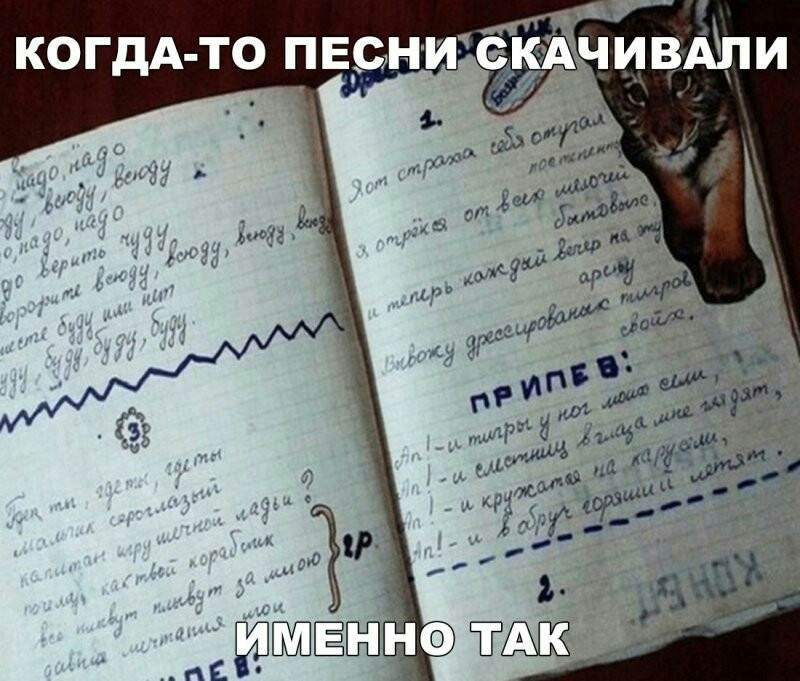 КОГДА-ТО ПЕСНИ СКАЧИВАЛИ
надо, надо
, всюду, всюду
о, надо, надо
верить чуду
всюду, всюду, всюду,
буду или нет
буду, буду, буду.
3
где ты, где ты
мальчик сероглазый
капитан игрушечной ладьи?
как твой кораблик
всё плывут за мною
давние мечтания мои
гр.
1.
Я от страха себя отучал
постепенно,
я отрёкся от всех мелочей
бытовых,
и теперь каждый вечер на эту
арену
Вывожу дрессированых тигров
своих.
ПРИПЕВ:
Ап!-и тигры у ног моих сели,
Ап!-и с лестниц в глаза мне глядят,
Ап!-и кружатся на карусели,
Ап!-и в обруч горящий летят.
2.
КОНЕЦ
ИМЕННО ТАК